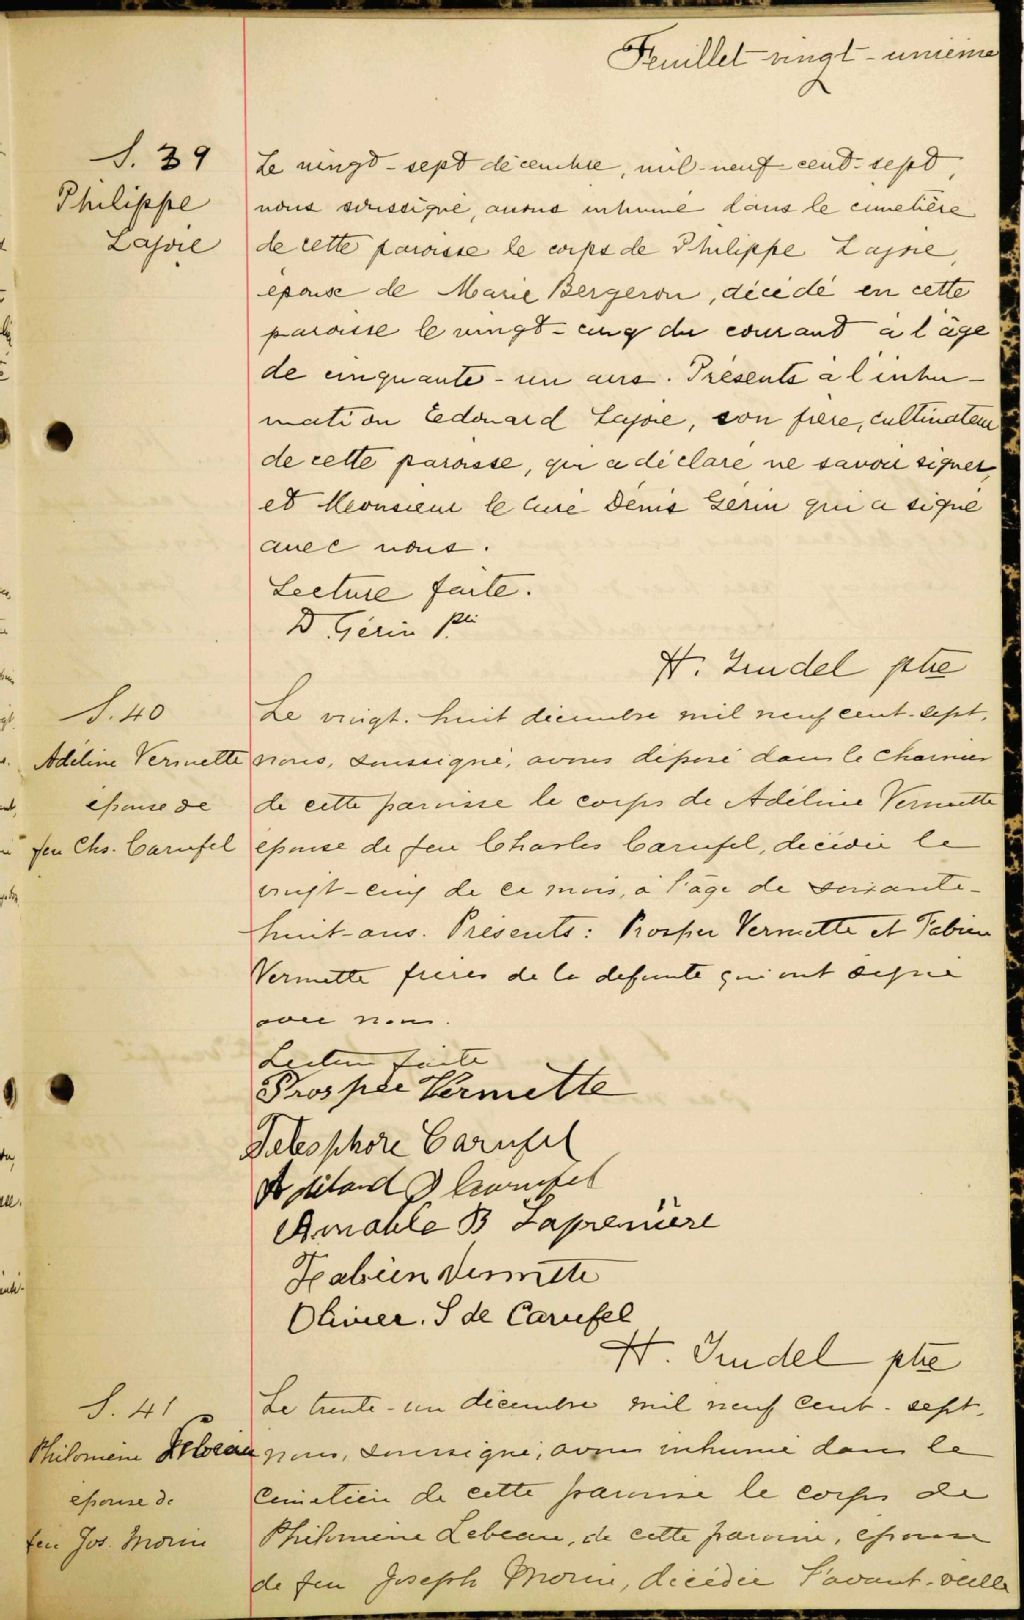 Feuillet vingt-unième
S. 39
Philippe
Lajoie
Le vingt-sept décembre, mil-neuf-cent-sept,
nous soussigné, avons inhumé dans le cimetière
de cette paroisse le corps de Philippe Lajoie,
époux de Marie Bergeron, décédé en cette
paroisse le vingt-cinq du courant à l'âge
de cinquante-un ans. Présents à l'inhu-
mation Edouard Lajoie, son frère, cultivateur
de cette paroisse, qui a déclaré ne savoir signer,
et Monsieur le Curé Dénis Gérin qui a signé
avec nous.
Lecture faite.
D. Gérin Ptre
H. Trudel ptre
S. 40
Adéline Vermette
épouse de
feu Chs. Carufel
Le vingt-huit décembre mil neuf cent-sept,
nous, soussigné, avons déposé dans le charnier
de cette paroisse le corps de Adéline Vermette
épouse de feu Charles Carufel, décédée le
vingt-cinq de ce mois, à l'âge de soixante-
huit-ans. Présents: Prosper Vermette et Fabien
Vermette frères de la defunte qui ont signé
avec nous.
Lecture faite
Prosper Vermette
Telesphore Carufel
Carufel
Amable B Lapremière
Fabien Vermette
Olivier. S de Carufel
H. Trudel ptre
S. 41
Philomène Lebeau
épouse de
feu Jos. Morin
Le trente-un décembre mil neuf cent-sept,
nous, soussigné, avons inhumé dans le
cimetière de cette paroisse le corps de
Philomène Lebeau, de cette paroisse, épouse
de feu Joseph Morin, décédée l'avant-veille